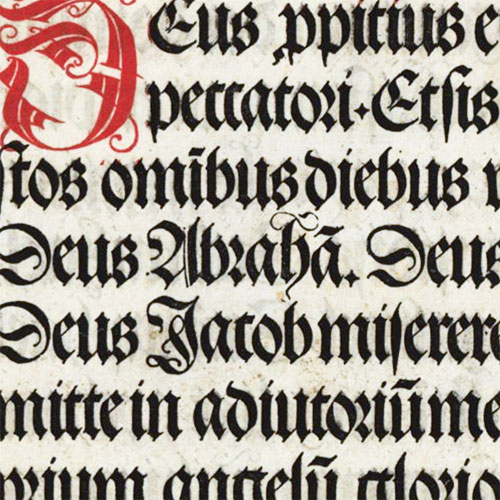 Deus ꝓpitius e
peccatori. Et sis
ſtos om̄ibus diebus
Deus Abrahā. Deus
Deus Jacob miſerere
mitte in adiutoriū me
prium angelū glorio